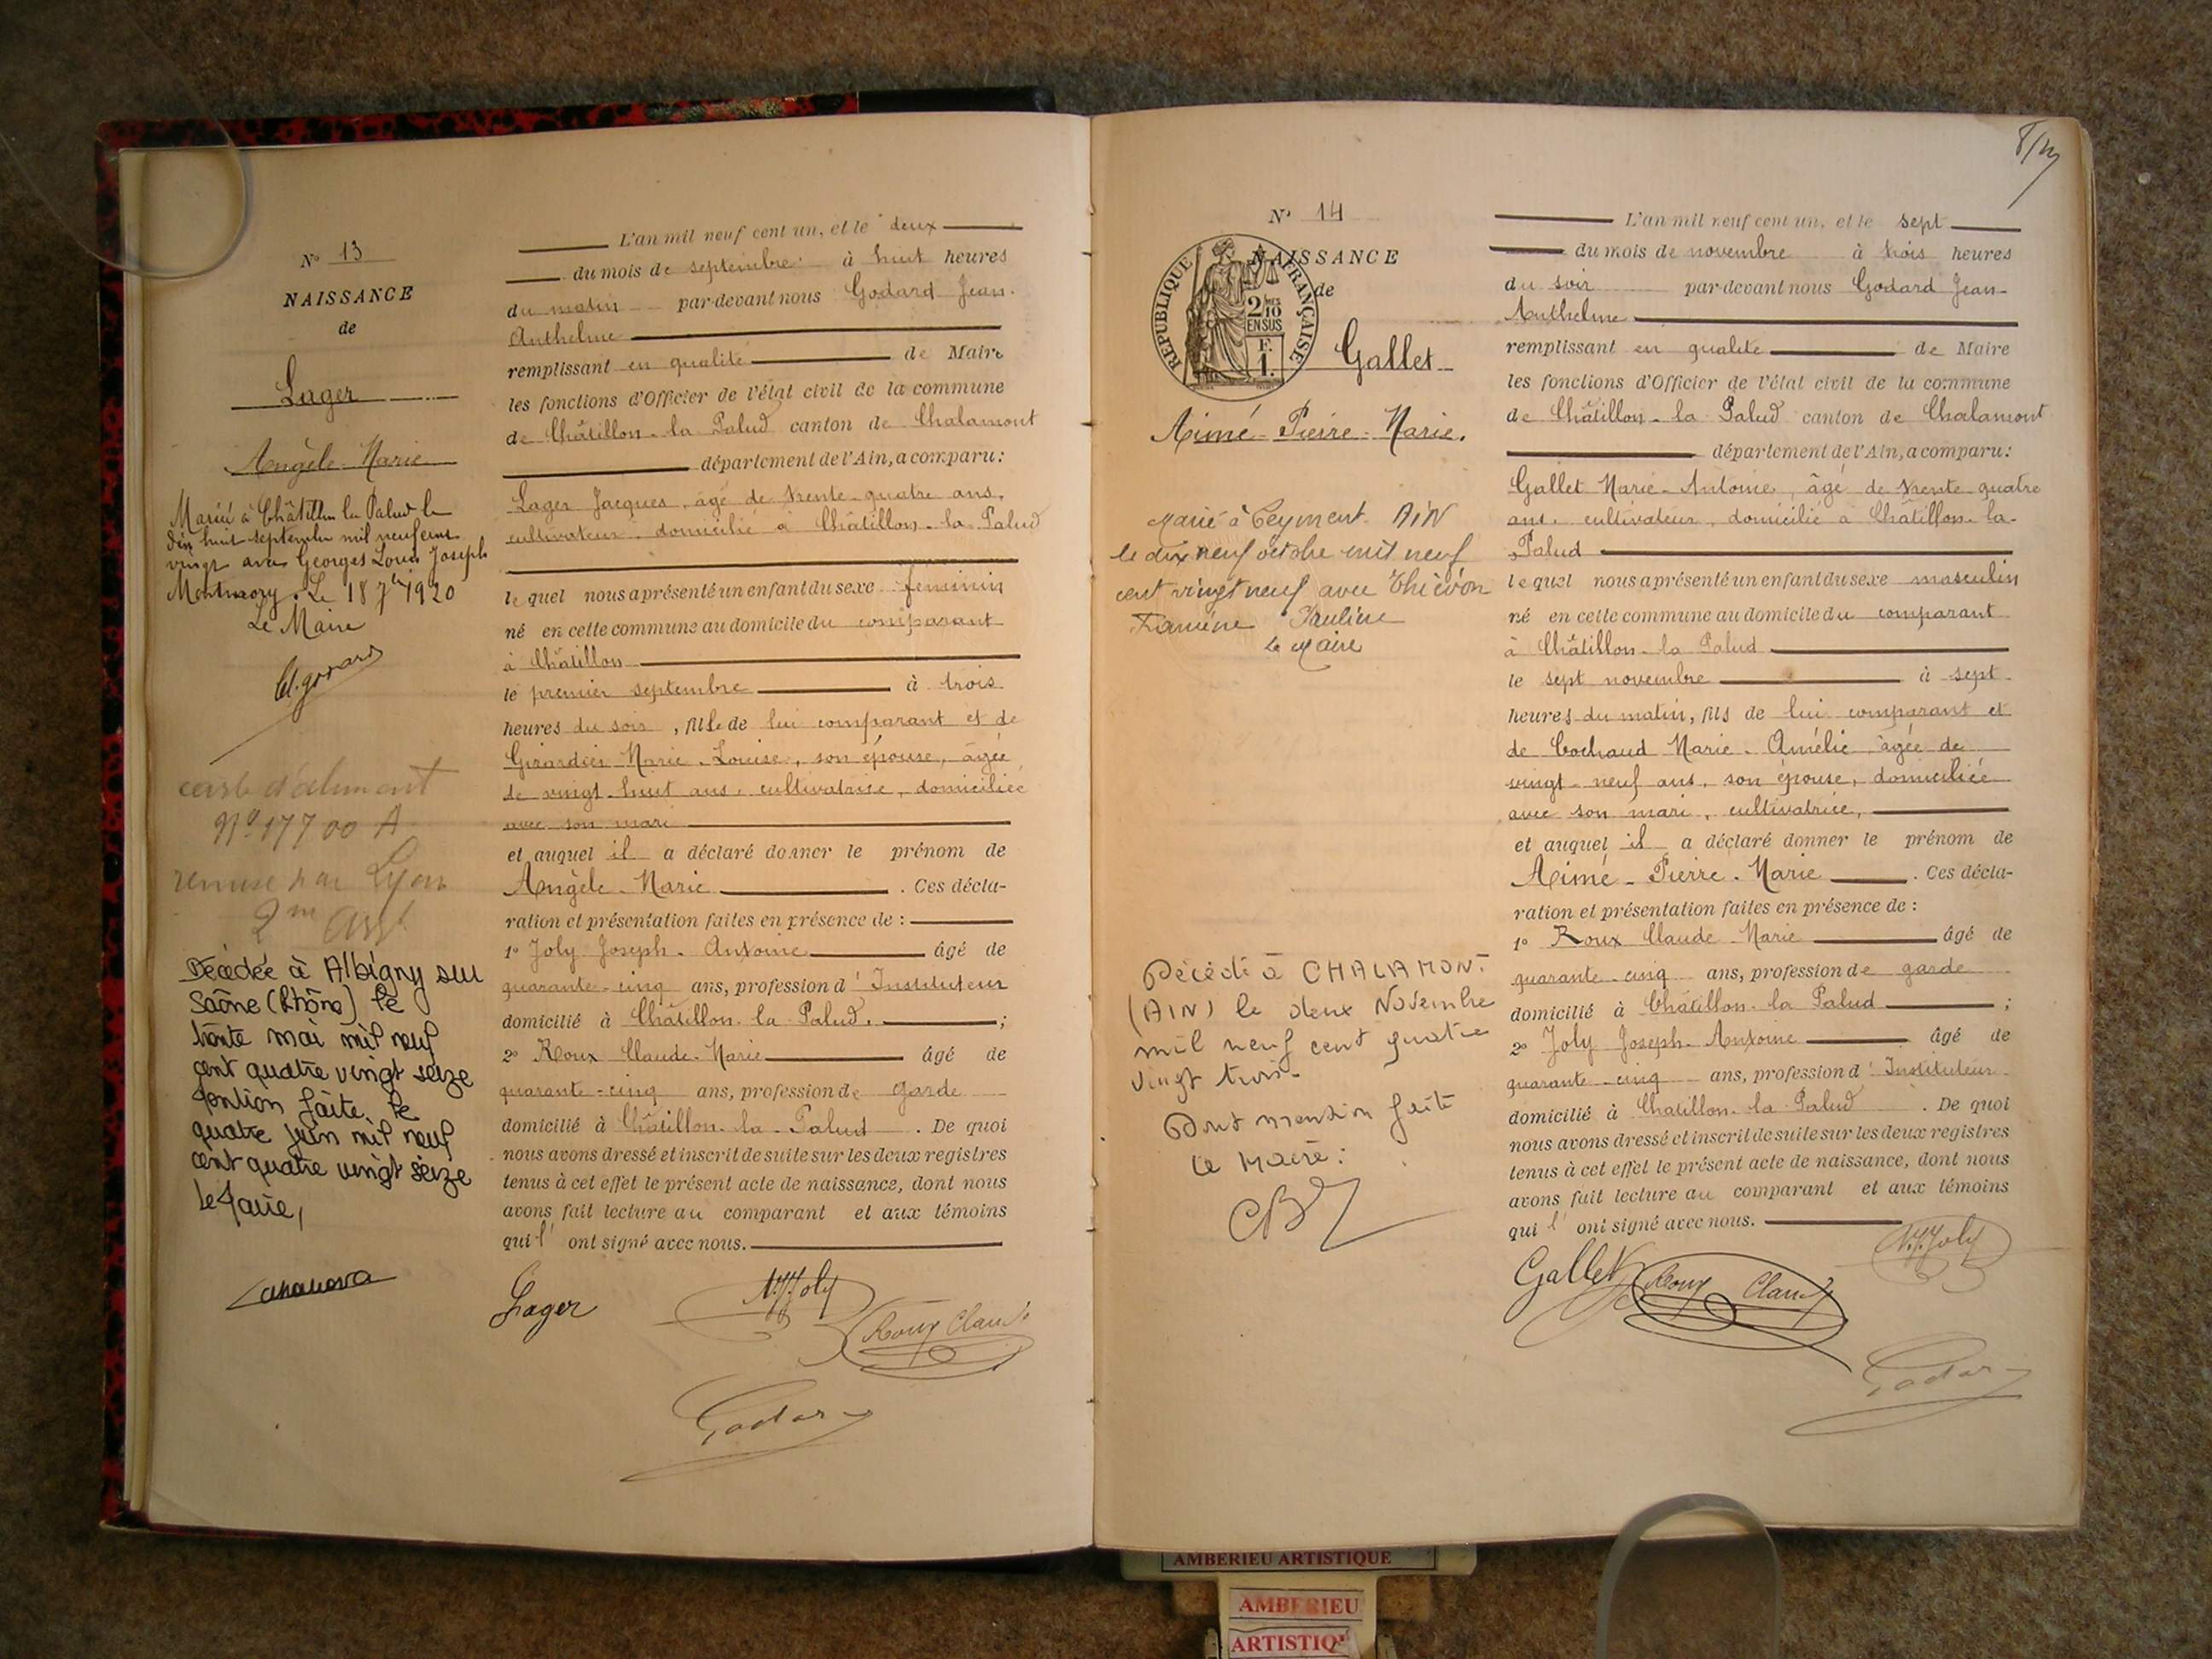 N° 13
NAISSANCE
de
Lager
Angèle-Marie
Mariée à Châtillon la Palud le
dix huit septembre mil neuf cent
vingt avec Georges Louis Joseph
Le 18 7bre 1920
Le Maire
carte d'aliment
N° 17700 A
remise par Lyon
2m arrt
Décédée à Albigny sur
Saône (Rhône) le
trente mai mil neuf
cent quatre vingt seize
mention faite le
quatre juin mil neuf
cent quatre vingt seize
Le Maire,
Casanova
L'an mil neuf cent un, et le deux
du mois de septembre à huit heures
du matin par-devant nous Godard Jean-
Anthelme
remplissant en qualité de Maire
les fonctions d'Officier de l'état civil de la commune
de Châtillon-la-Palud canton de Chalamont
département de l'Ain, a comparu:
Lager Jacques, âgé de trente-quatre ans,
cultivateur domicilié à Châtillon-la-Palud
lequel nous a présenté un enfant du sexe féminin
né en cette commune au domicile du comparant
à Châtillon
le premier septembre à trois
heures du soir, fille de lui comparant et de
Marie-Louise, son épouse, âgée
de vingt-huit ans, cultivatrice, domiciliée
avec son mari
et auquel il a déclaré donner le prénom de
Angèle-Marie. Ces décla-
ration et présentation faites en présence de :
1° Joly Joseph-Antoine âgé de
quarante-cinq ans, profession d'Instituteur
domicilié à Châtillon-la-Palud. ;
2° Roux Claude-Marie âgé de
quarante-cinq ans, profession de garde
domicilié à Châtillon-la-Palud. De quoi
nous avons dressé et inscrit de suite sur les deux registres
tenus à cet effet le présent acte de naissance, dont nous
avons fait lecture au comparant et aux témoins
qui l'ont signé avec nous.
Lager
Joly
Roux Claude
Godard
8/
N° 14
NAISSANCE
de
RÉPUBLIQUE FRANÇAISE
2/10
EN SUS
F.
1.
Gallet
Aimé-Pierre-Marie.
Marié à Leyment AIN
le dix neuf octobre mil neuf
cent vingt neuf avec Thiévon
Pauline
Le Maire
Décédé à CHALAMONT
(AIN) le deux Novembre
mil neuf cent quatre
vingt trois.
Dont mention faite
Le Maire:
L'an mil neuf cent un, et le sept
du mois de novembre à trois heures
du soir par-devant nous Godard Jean-
Anthelme
remplissant en qualité de Maire
les fonctions d'Officier de l'état civil de la commune
de Châtillon-la-Palud canton de Chalamont
département de l'Ain, a comparu:
Gallet Marie-Antoine, âgé de trente-quatre
ans, cultivateur, domicilié à Châtillon-la-
Palud
lequel nous a présenté un enfant du sexe masculin
né en cette commune au domicile du comparant
à Châtillon-la-Palud
le sept novembre à sept
heures du matin, fils de lui comparant et
de Cochaud Marie-Amélie âgée de
vingt-neuf ans, son épouse, domiciliée
avec son mari, cultivatrice,
et auquel il a déclaré donner le prénom de
Aimé-Pierre-Marie. Ces décla-
ration et présentation faites en présence de :
1° Roux Claude-Marie âgé de
quarante-cinq ans, profession de garde
domicilié à Châtillon-la-Palud ;
2° Joly Joseph-Antoine âgé de
quarante-cinq ans, profession d'Instituteur
domicilié à Chatillon-la-Palud. De quoi
nous avons dressé et inscrit de suite sur les deux registres
tenus à cet effet le présent acte de naissance, dont nous
avons fait lecture au comparant et aux témoins
qui l'ont signé avec nous.
Joly
Gallet
Roux Claude
Godard
AMBERIEU ARTISTIQUE
AMBERIEU
ARTISTIQU